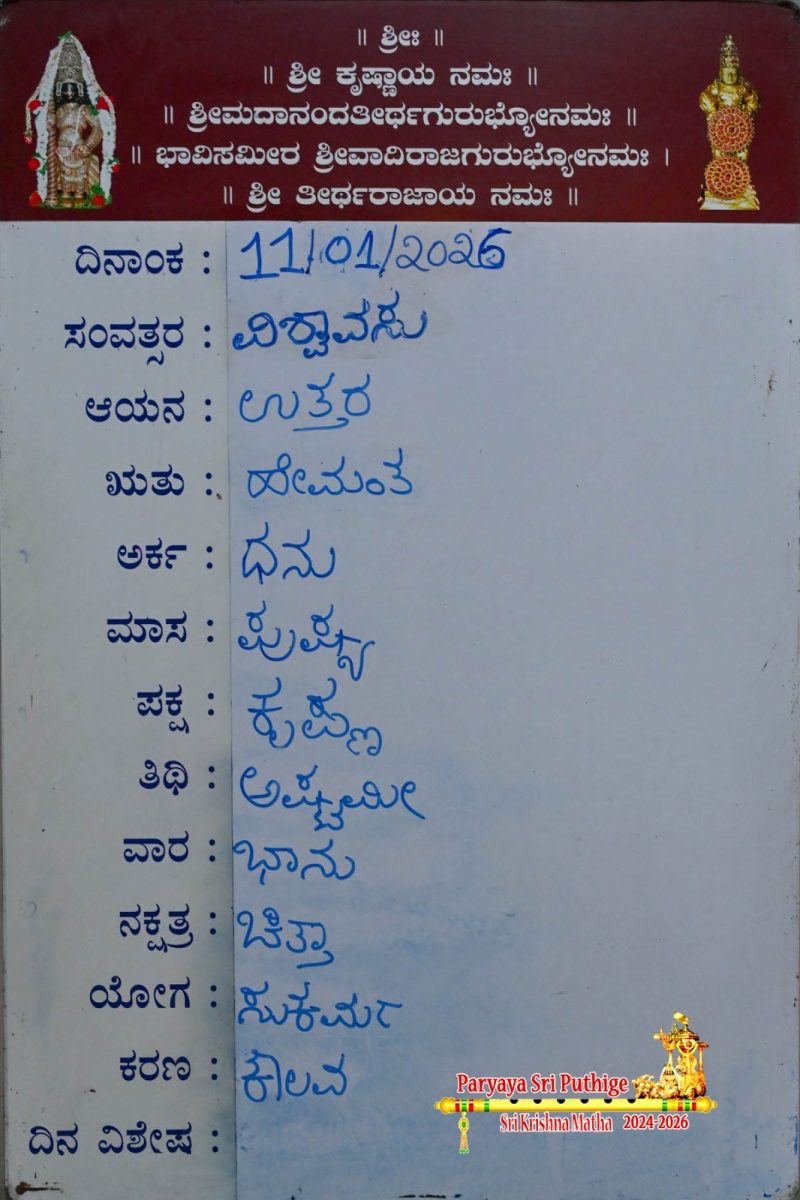 ॥ ಶ್ರೀಃ ॥
॥ ಶ್ರೀ ಕೃಷ್ಣಾಯ ನಮಃ ॥
॥ ಶ್ರೀಮದಾನಂದತೀರ್ಥಗುರುಭ್ಯೋನಮಃ ॥
॥ ಭಾವಿಸಮೀರ ಶ್ರೀವಾದಿರಾಜಗುರುಭ್ಯೋನಮಃ ।
॥ ಶ್ರೀ ತೀರ್ಥರಾಜಾಯ ನಮಃ ॥
ದಿನಾಂಕ : 11/01/2026
ಸಂವತ್ಸರ : ವಿಶ್ವಾವಸು
ಆಯನ : ಉತ್ತರ
ಋತು : ಹೇಮಂತ
ಅರ್ಕ : ಧನು
ಮಾಸ : ಪುಷ್ಯ
ಪಕ್ಷ : ಕೃಷ್ಣ
ತಿಥಿ : ಅಷ್ಟಮೀ
ವಾರ : ಭಾನು
ನಕ್ಷತ್ರ : ಚಿತ್ತಾ
ಯೋಗ : ಸುಕರ್ಮ
ಕರಣ : ಕೌಲವ
ದಿನ ವಿಶೇಷ :
Paryaya Sri Puthige
Sri Krishna Matha 2024-2026